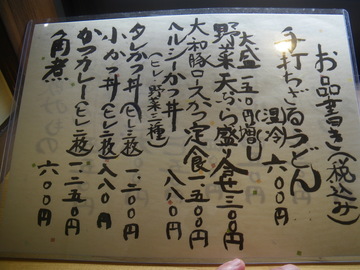 お品書き(税込み)
手打ちざるうどん
温冷 六〇〇円
大盛一五〇円増し
野菜天ぷら盛り合せ三〇〇円
大和豚ロースかつ定食一、五〇〇円
ヘルシーかつ丼 八八〇円
(ヒレ・野菜三種)
タレかつ丼(ヒレ三枚)一、二〇〇円
小かつ丼(ヒレ二枚)八八〇円
かつカレー(ヒレ三枚)一、二五〇円
角煮 六〇〇円